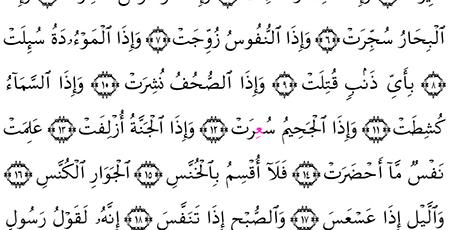 ٱلْبِحَارُ سُجِّرَتْ ٦ وَإِذَا ٱلنُّفُوسُ زُوِّجَتْ ٧ وَإِذَا ٱلْمَوْءُۥدَةُ سُئِلَتْ
٨ بِأَيِّ ذَنۢبٖ قُتِلَتْ ٩ وَإِذَا ٱلصُّحُفُ نُشِرَتْ ١٠ وَإِذَا ٱلسَّمَآءُ
كُشِطَتْ ١١ وَإِذَا ٱلْجَحِيمُ سُعِرَتْ ١٢ وَإِذَا ٱلْجَنَّةُ أُزْلِفَتْ ١٣ عَلِمَتْ
نَفْسٞ مَّآ أَحْضَرَتْ ١٤ فَلَآ أُقْسِمُ بِٱلْخُنَّسِ ١٥ ٱلْجَوَارِ ٱلْكُنَّسِ ١٦
وَٱلَّيْلِ إِذَا عَسْعَسَ ١٧ وَٱلصُّبْحِ إِذَا تَنَفَّسَ ١٨ إِنَّهُۥ لَقَوْلُ رَسُولٖ